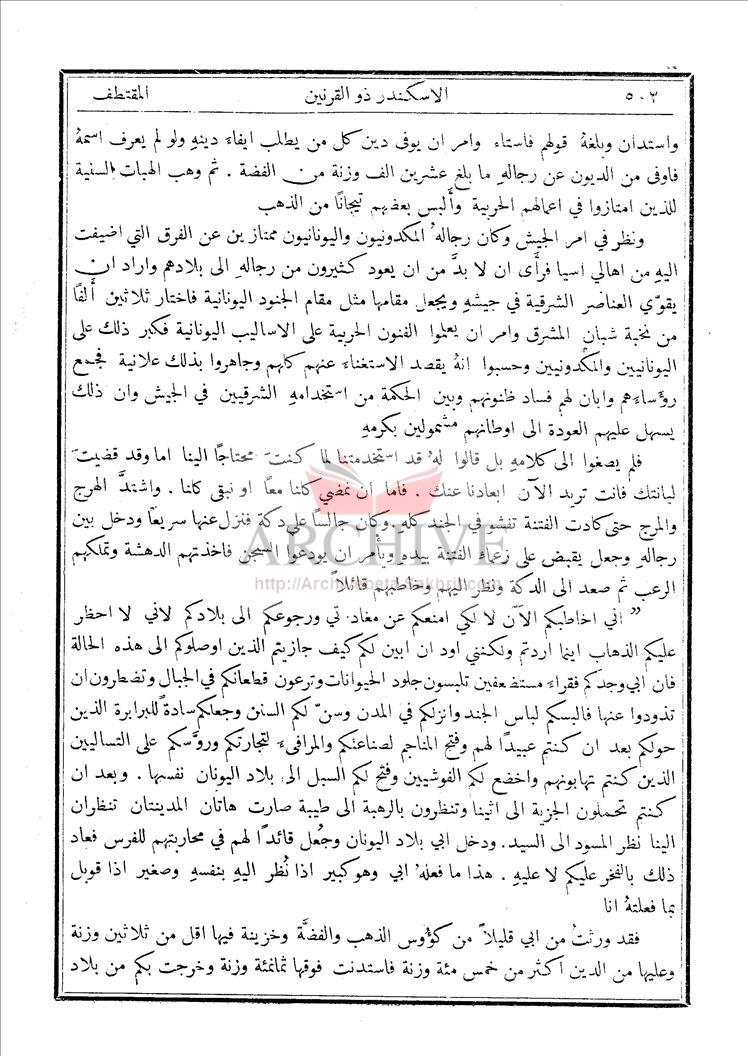 ٥٠٢ الاسكندر ذو القرنين المقتطف
واستدان وبلغهُ قولهم فاستاء وامر ان يوفى دين كل من يطلب ايفاء دينهِ ولو لم يعرف اسمهُ
فاوفى من الديون عن رجالهِ ما بلغ عشرين الف وزنة من الفضة . ثم وهب الهبات السنية
للذين امتازوا في اعمالهم الحربية وأَلبس بعضهم تيجانًا من الذهب
ونظر في امر الجيش وكان رجالهُ المكدونيون واليونانيون ممتازين عن الفرق التي اضيفت
اليهِ من اهالي اسيا فرأَى ان لا بدَّ من ان يعود كثيرون من رجالهِ الى بلادهم واراد ان
يقوّي العناصر الشرقية في جيشهِ ويجعل مقامها مثل مقام الجنود اليونانية فاختار ثلاثين أَلفًا
من نخبة شبان المشرق وامر ان يعلموا الفنون الحربية على الاساليب اليونانية فكبر ذلك على
اليونانيين والمكدونيين وحسبوا انهُ يقصد الاستغناء عنهم كلهم وجاهروا بذلك علانية فجمع
رؤساءهم وابان لهم فساد ظنونهم وبين الحكمة من استخدامهِ الشرقيين في الجيش وان ذلك
يسهل عليهم العودة الى اوطانهم مشمولين بكرمهِ
فلم يصغوا الى كلامهِ بل قالوا لهُ قد استخدمتنا لما كنت محتاجًا الينا اما وقد قضيت
لبانتك فانت تريد الآن ابعادنا عنك . فاما ان نمضي كلنا معًا او نبقى كلنا . واشتدَّ الهرج
والمرج حتى كادت الفتنة تفشو في الجند كلهِ وكان جالسًا على دكة فنزل عنها سريعًا ودخل بين
رجالهِ وجعل يقبض على زعماء الفتنة بيدهِ ويأمر ان يودعوا السجن فاخذتهم الدهشة وتملكهم
الرعب ثم صعد الى الدكة ونظر اليهم وخاطبهم قائلاً
ARCHIVE
" اني اخاطبكم الآن لا لكي امنعكم عن مغادرتي ورجوعكم الى بلادكم لاني لا احظر
عليكم الذهاب اينما اردتم ولكنني اود ان ابين لكم كيف جازيتم الذين اوصلوكم الى هذه الحالة
فان ابي وجدكم فقراء مستضعفين تلبسون جلود الحيوانات وترعون قطعانكم في الجبال وتضطرون ان
تذودوا عنها فالبسكم لباس الجند وانزلكم في المدن وسنّ لكم السنن وجعلكم سادةً للبرابرة الذين
حولكم بعد ان كنتم عبيدًا لهم وفتح المناجم لصناعتكم والمرافىء لتجارتكم وروّسكم على التساليين
الذين كنتم تهابونهم واخضع لكم الفوشيين وفتح لكم السبل الى بلاد اليونان نفسها . وبعد ان
كنتم تحملون الجزية الى اثينا وتنظرون بالرهبة الى طيبة صارت هاتان المدينتان تنظران
الينا نظر المسود الى السيد. ودخل ابي بلاد اليونان وجُعل قائدًا لهم في محاربتهم للفرس فعاد
ذلك بالفخر عليكم لا عليهِ . هذا ما فعلهُ ابي وهو كبير اذا نُظر اليهِ بنفسهِ وصغير اذا قوبل
بما فعلتهُ انا
فقد ورثتُ من ابي قليلاً من كؤوس الذهب والفضَّة وخزينة فيها اقل من ثلاثين وزنة
وعليها من الدين اكثر من خمس مئة وزنة فاستدنت فوقها ثمانمئة وزنة وخرجت بكم من بلاد